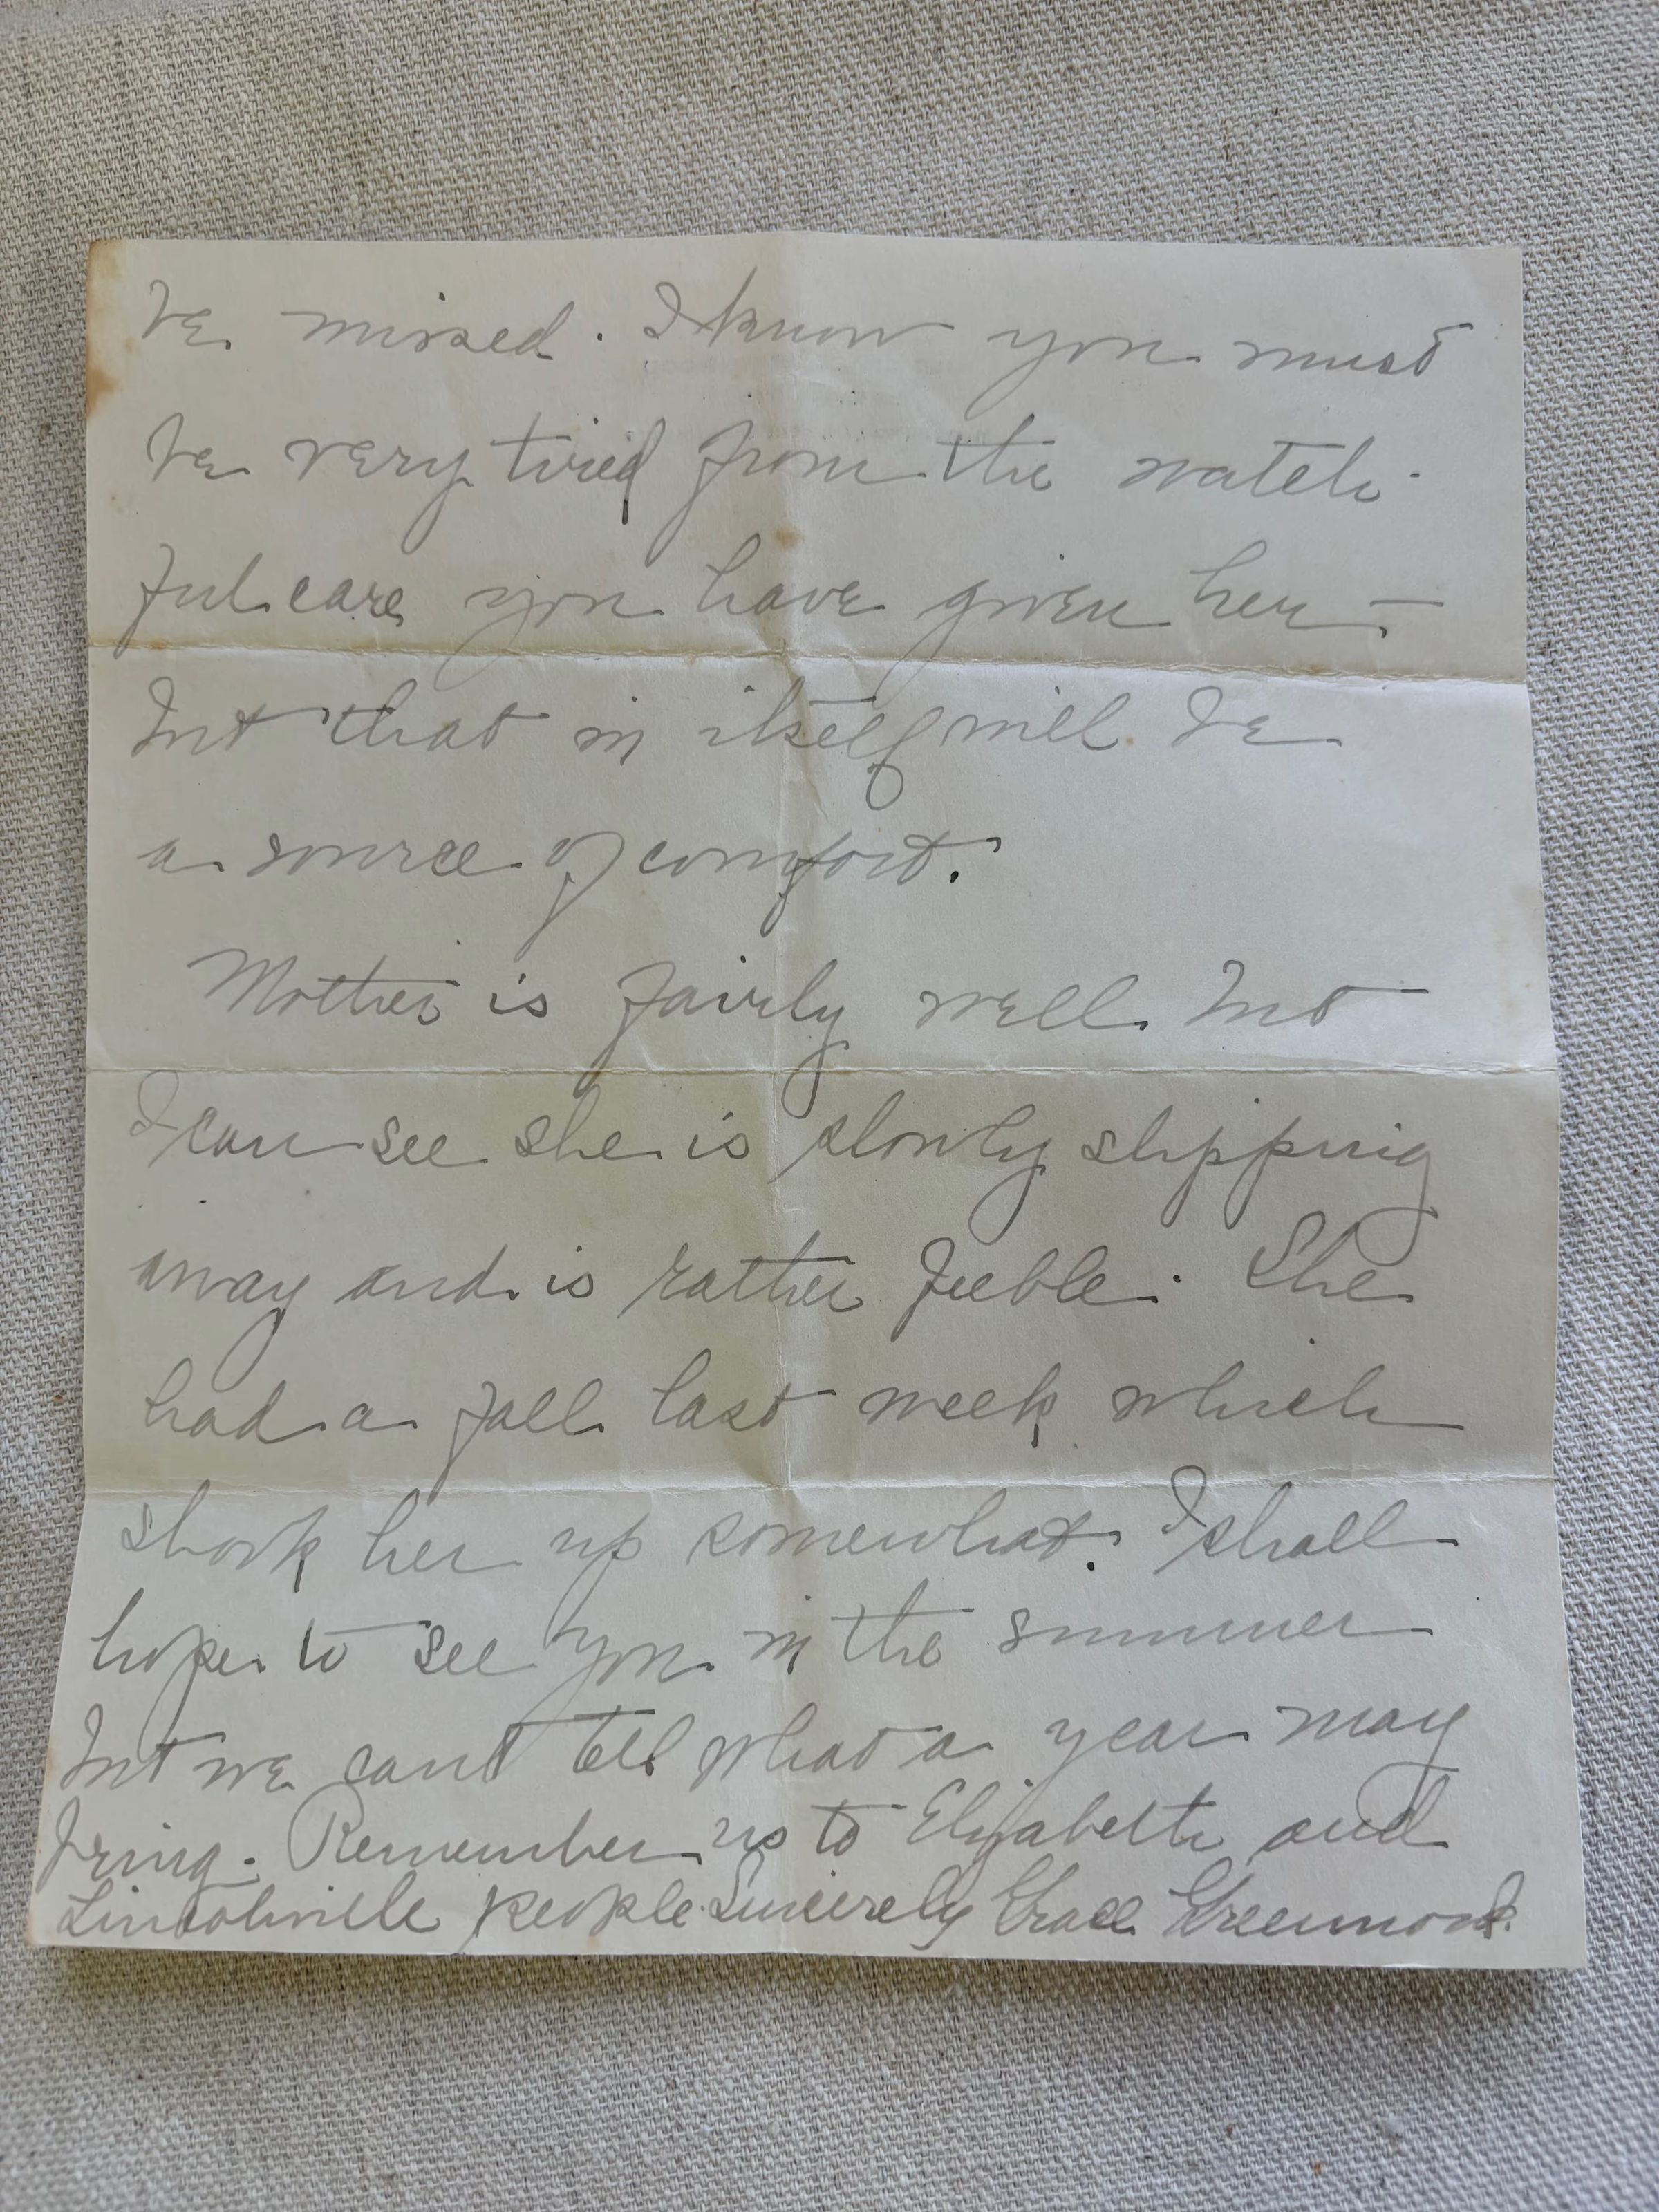 be missed. I know you must
be very tired from the watch-
ful care you have given her—
but that in itself will be
a source of comfort.
Mother is fairly well but
I can see she is slowly slipping
away and is rather feeble. She
had a fall last week which
shook her up somewhat. I shall
hope to see you in the summer
but we cant tell what a year may
bring. Remember us to Elizabeth and
Lincolnville people. Sincerely Grace